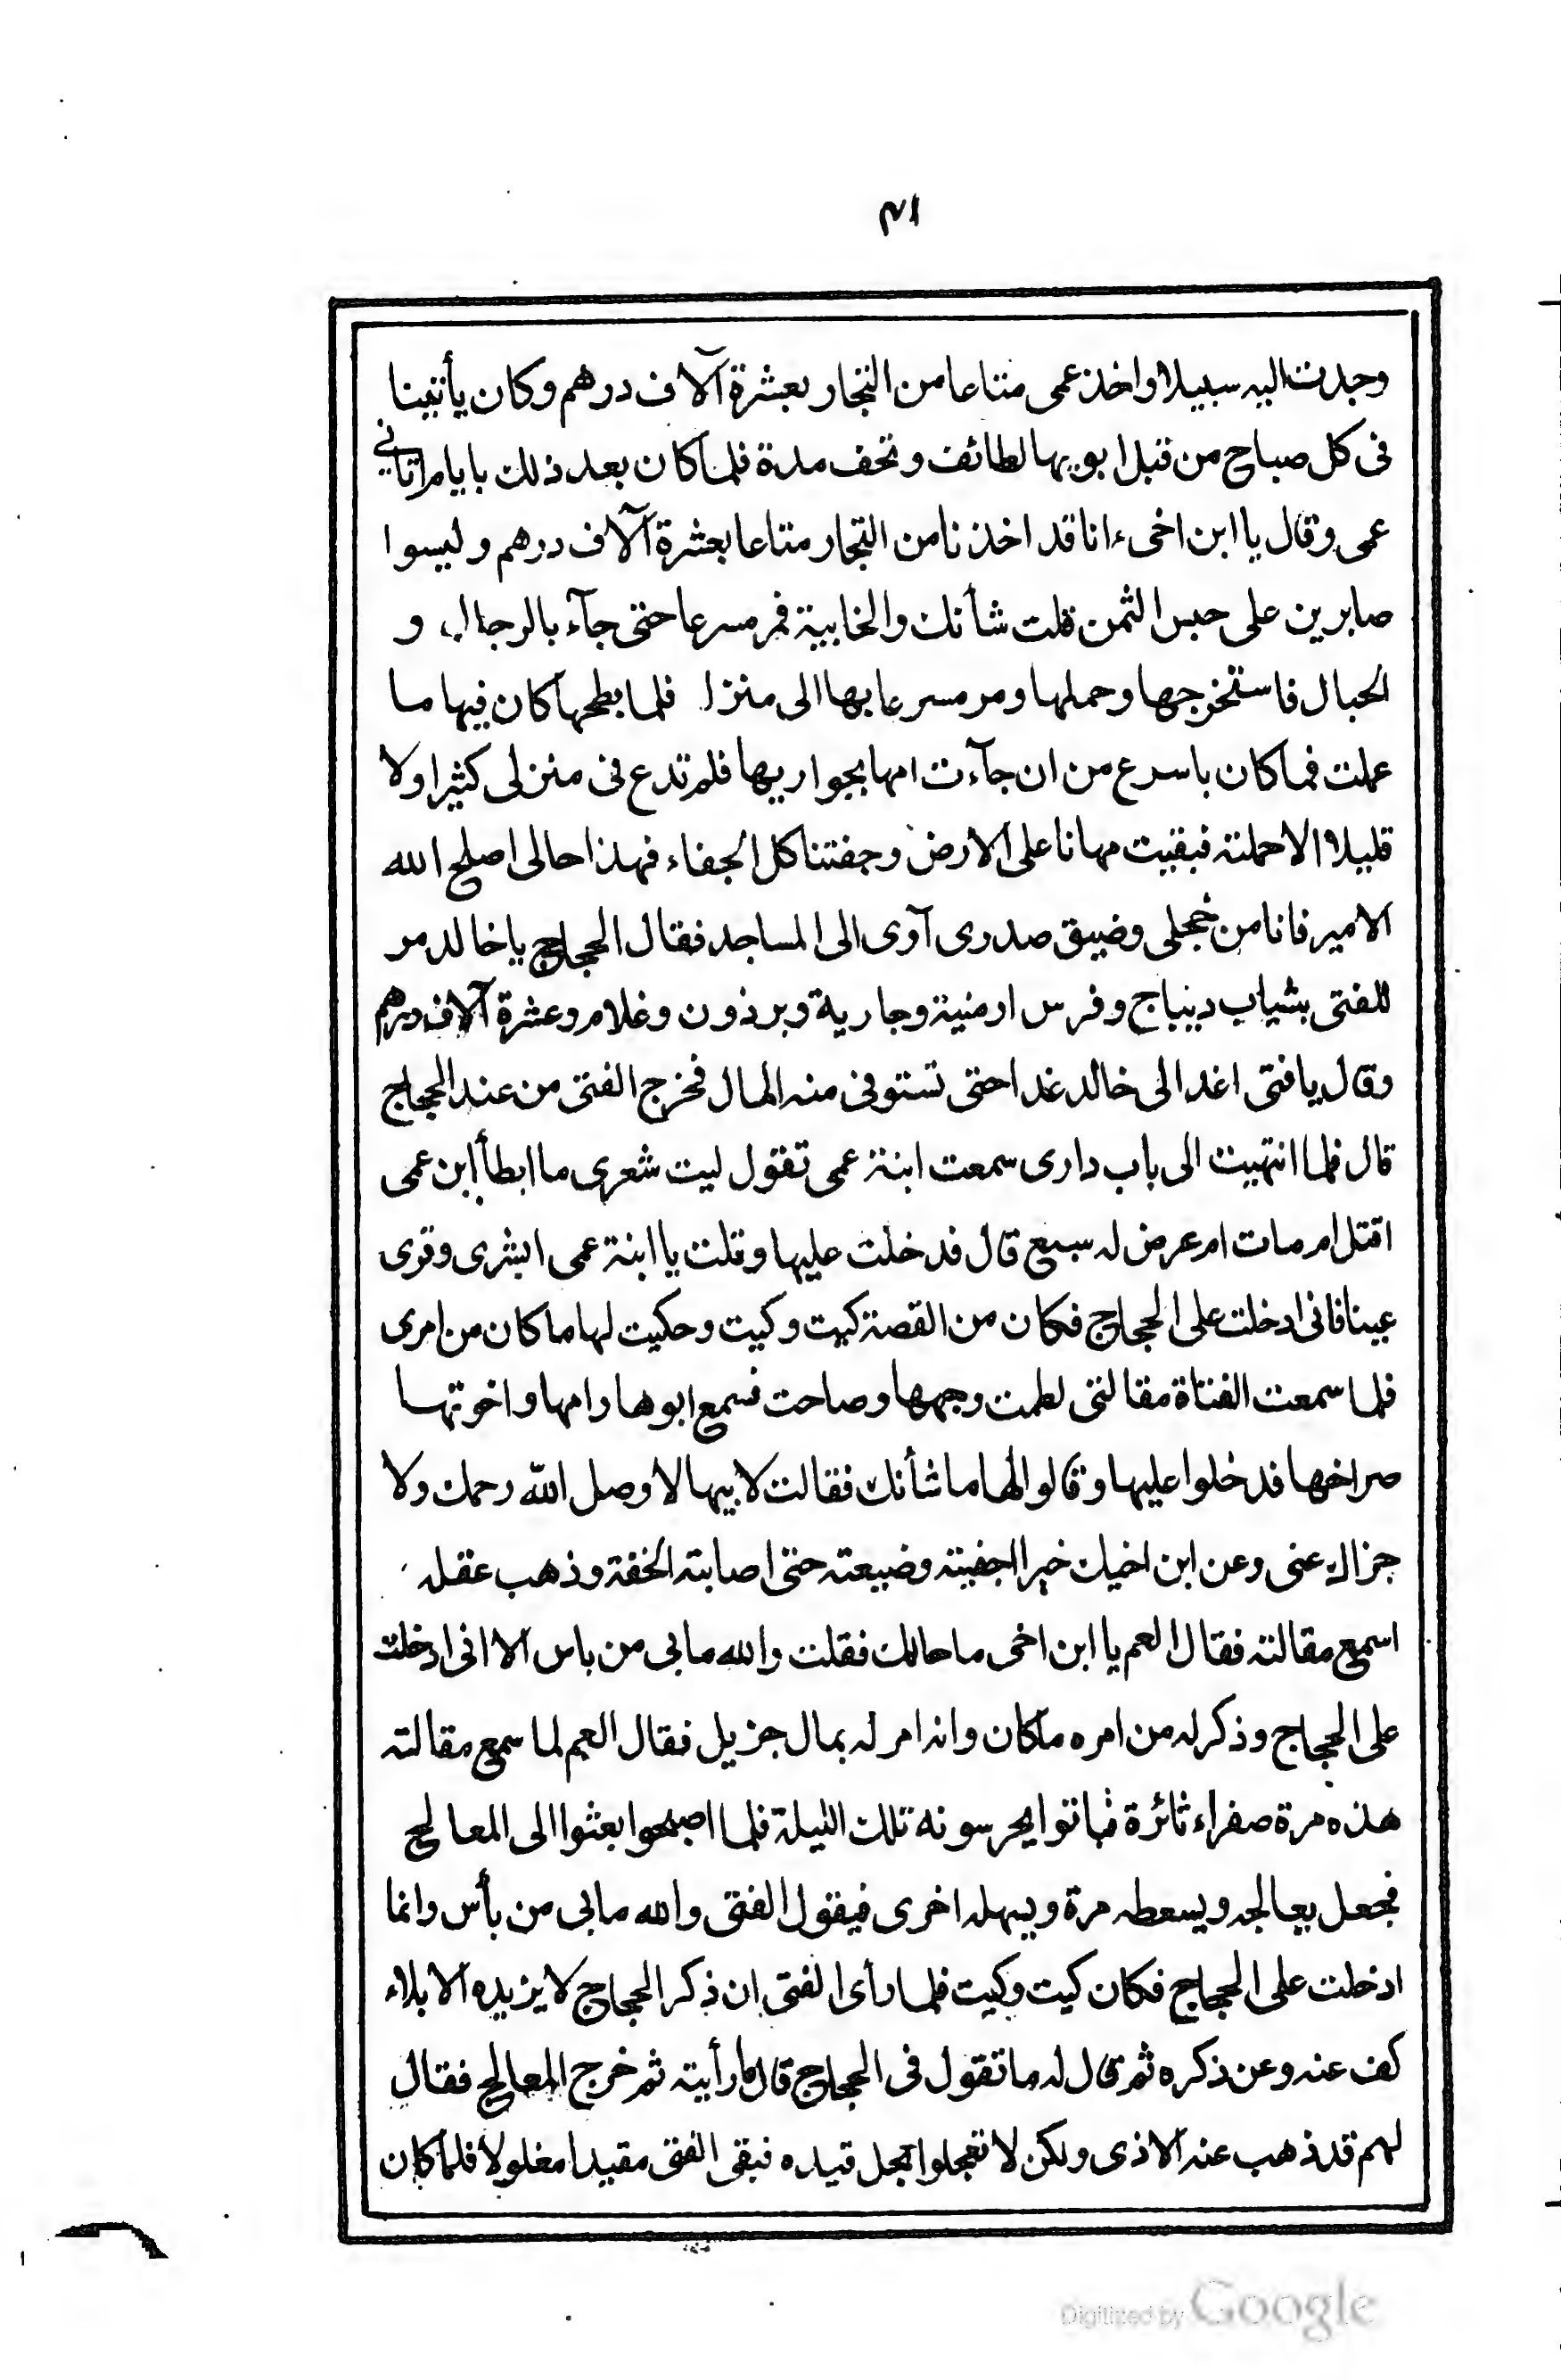 ٤١
وجدت اليه سبيلا واخذ عمى متاعا من التجار بعشرة آلاف درهم وكان يأتينا
فى كل صباح من قبل ابويها لطائف وتحف مدة فلما كان بعد ذلك بايام اتانى
عمى وقال يا ابن اخى انا قد اخذنا من التجار متاعا بعشرة آلاف درهم وليسوا
صابرين على حبس الثمن قلت شأنك والخابية فمر مسرعا حتى جآء بالرجال و
الحبال فاستخرجها وحملها ومر مسرعا بها الى منزله فلما بطحها كان فيها ما
عملت فما كان باسرع من ان جآءت امها بجواريها فلم تدع فى منزلى كثيرا ولا
قليلا الا حملته فبقيت مهانا على الارض وجفتنا كل الجفاء فهذا حالى اصلح الله
الامير فانا من خجلى وضيق صدرى آوى الى المساجد فقال الحجاج يا خالد مر
للفتى بثياب ديباج وفرس ارمنية وجارية وبرذون وغلام وعشرة آلاف درهم
وقال يا فتى اغد الى خالد غدا حتى تستوفى منه المال فخرج الفتى من عند الحجاج
قال فلما انتهيت الى باب دارى سمعت ابنة عمى تقول ليت شعرى ما ابطأ ابن عمى
اقتل ام مات ام عرض له سبع قال فدخلت عليها وقلت يا ابنة عمى ابشرى وقرى
عينا فانى ادخلت على الحجاج فكان من القصة كيت وكيت وحكيت لها ما كان من امرى
فلما سمعت الفتاة مقالتى لطمت وجهها وصاحت فسمع ابوها وامها واخوتها
صراخها فدخلوا عليها وقالوا لها ما شأنك فقالت لابيها لا وصل الله رحمك ولا
جزاك عنى وعن ابن اخيك خيرا اجفيته وضيعته حتى اصابته الخفة وذهب عقله
اسمع مقالته فقال العم يا ابن اخى ما حالك فقلت والله ما بى من باس الا انى ادخلت
على الحجاج وذكر له من امره ما كان وانه امر له بمال جزيل فقال العم لما سمع مقالته
هذه مرة صفراء ثائرة فباتوا يحرسونه تلك الليلة فلما اصبحوا بعثوا الى المعالج
فجعل يعالجه ويسعطه مرة ويسهله اخرى فيقول الفتى والله ما بى من بأس وانما
ادخلت على الحجاج فكان كيت وكيت فلما رأى الفتى ان ذكر الحجاج لا يزيده الا بلاء
كف عنه وعن ذكره ثم قال له ما تقول فى الحجاج قال ما رأيته ثم خرج المعالج فقال
لهم قد ذهب عنه الاذى ولكن لا تعجلوا بحل قيده فبقى الفتى مقيدا مغلولا فلما كان
Digitized by Google